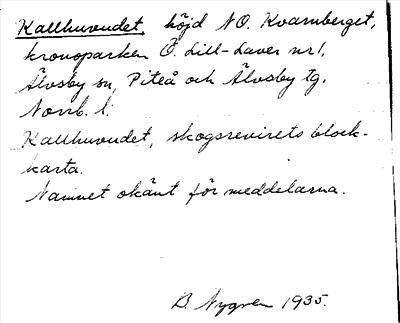 Kallhuvudet, höjd NO. Kvarnberget,
kronoparken Ö. Lill-Laver nr 1,
Älvsby sn, Piteå och Älvsby tg.
Norrb. l.
Kallhuvudet, skogsrevirets block-
karta.
Namnet okänt för meddelarna.
B. Nygren 1935.